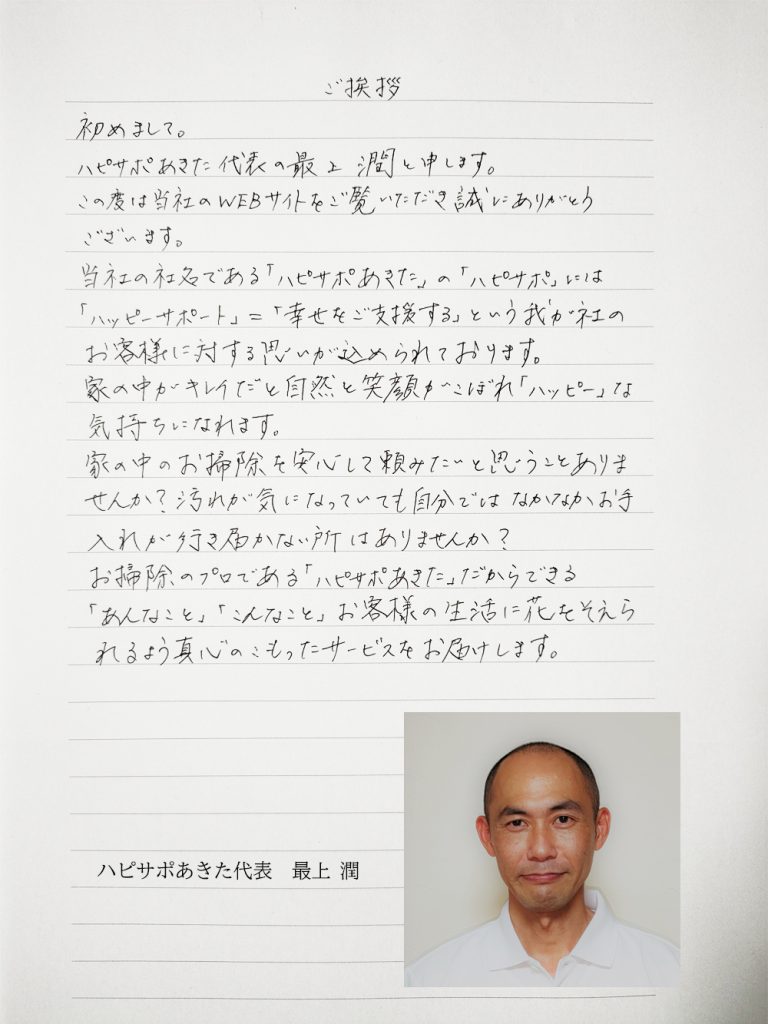 ご挨拶
初めまして。
ハピサポあきた代表の最上 潤と申します。
この度は当社のWEBサイトをご覧いただき誠にありがとう
ございます。
当社の社名である「ハピサポあきた」の「ハピサポ」には
「ハッピーサポート」=「幸せをご支援する」という我が社の
お客様に対する思いが込められております。
家の中がキレイだと自然と笑顔がこぼれ「ハッピー」な
気持ちになれます。
家の中のお掃除を安心して頼みたいと思うことありま
せんか?汚れが気になっていても自分ではなかなかお手
入れが行き届かない所はありませんか?
お掃除のプロである「ハピサポあきた」だからできる
「あんなこと」「こんなこと」お客様の生活に花をそえら
れるよう真心のこもったサービスをお届けします。
ハピサポあきた代表 最上 潤